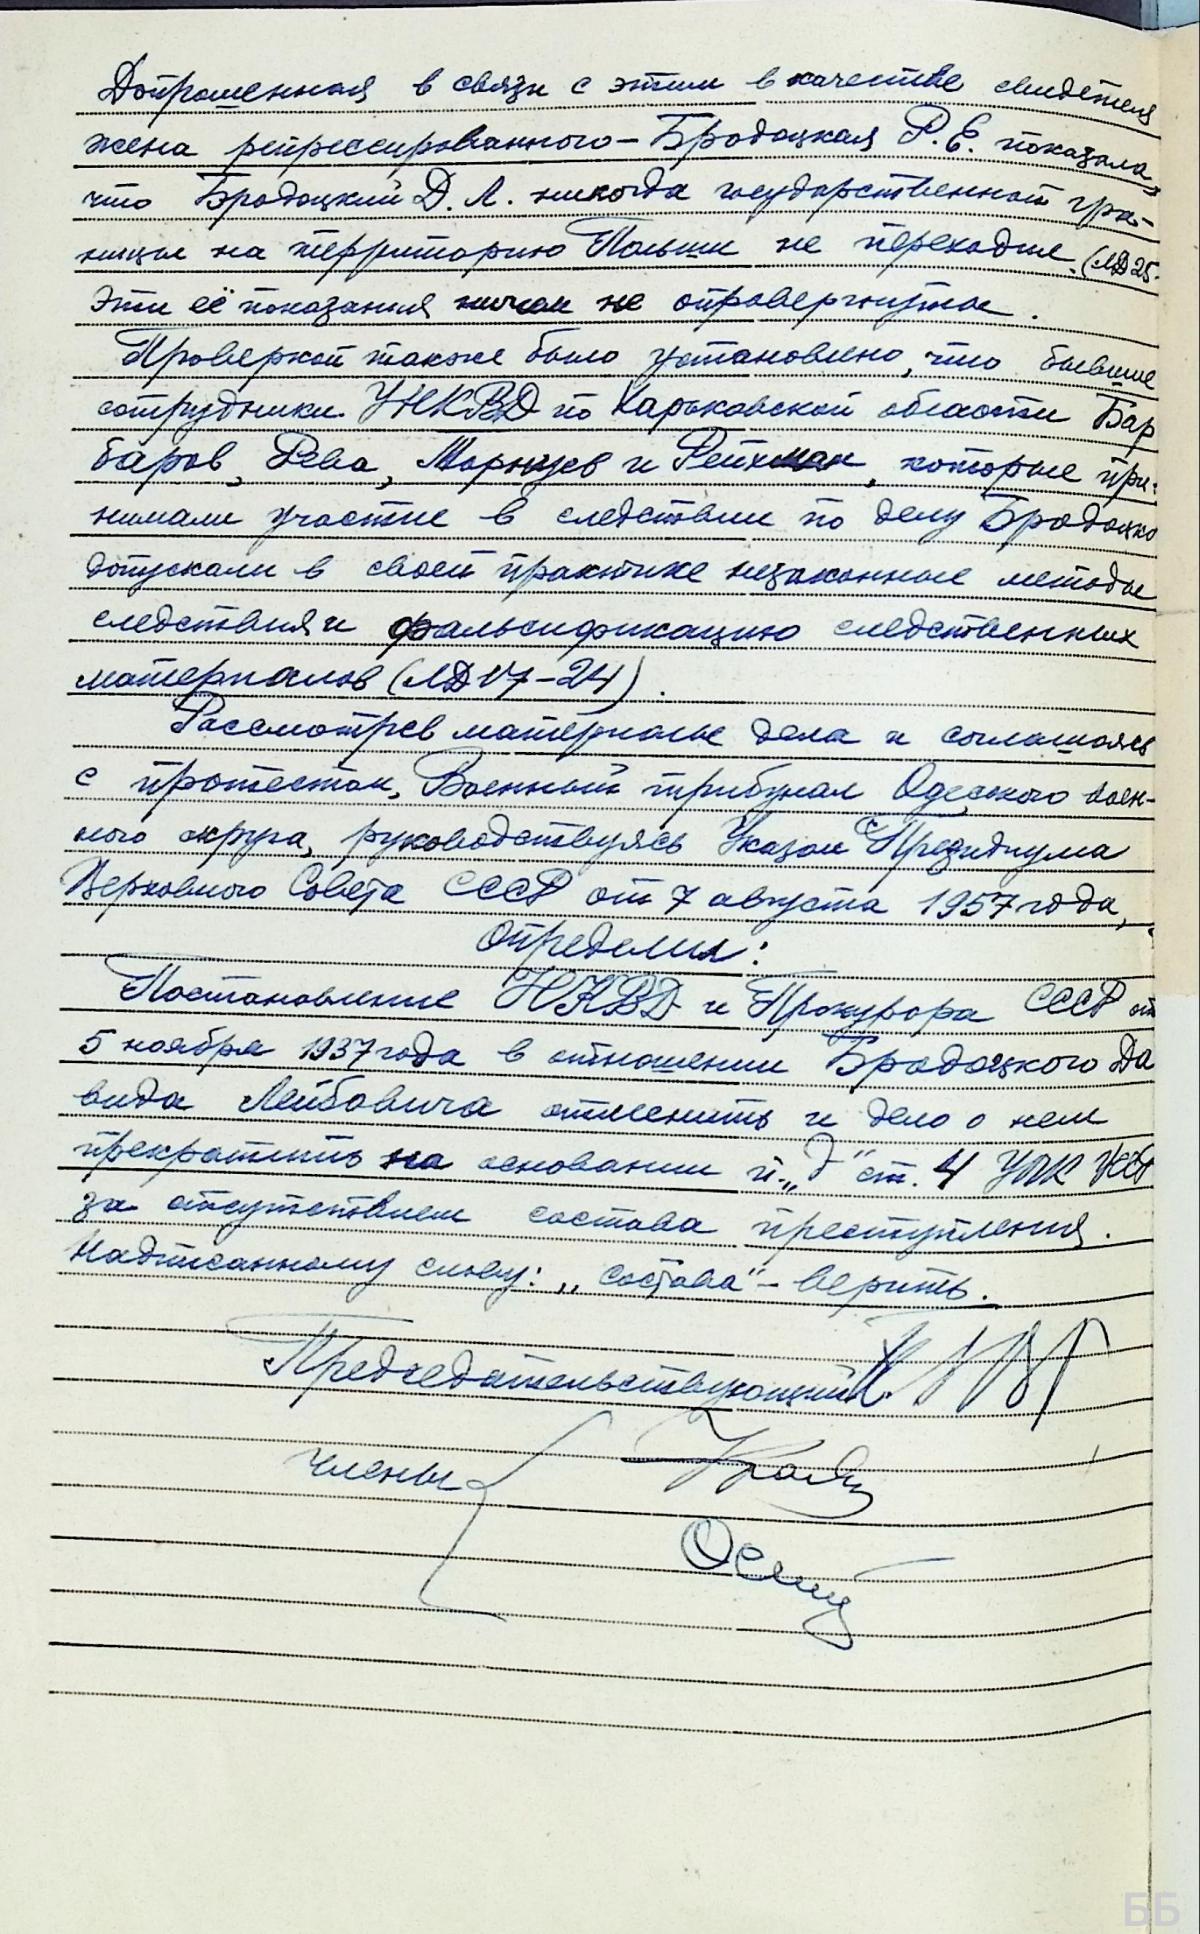 Допрошенная в связи с этим в качестве свидетеля
жена репрессированного – Бродоцкая Р.Е. показала,
что Бродоцкий Д.Л. никогда государственной гра-
ницы на территорию Польши не переходил. (ЛД 25.
Эти её показания ничем не опровергнуты.
Проверкой также было установлено, что бывшие
сотрудники УНКВД по Харьковской области Бар
баров, Рева, и Рейхман, которые при-
нимали участие в следствии по делу Бродоцко
допускали в своей практике незаконные методы
следствия и фальсификацию следственных
материалов (ЛД 17-24).
Рассмотрев материалы дела и соглашаясь
с протестом, Военный трибунал Одесского воен-
ного округа, руководствуясь Указом Президиума
Верховного Совета СССР от 7 августа 1957 года,
определил:
Постановление НКВД и Прокурора СССР от
5 ноября 1937 года в отношении Бродоцкого Да
вида Лейбовича отменить и дело о нем
прекратить на основании п. „д“ ст. 4 УПК УССР
за отсутствием состава преступления.
Надписанному слову: „состава“ – верить.
Председательствующий
Члены
ББ